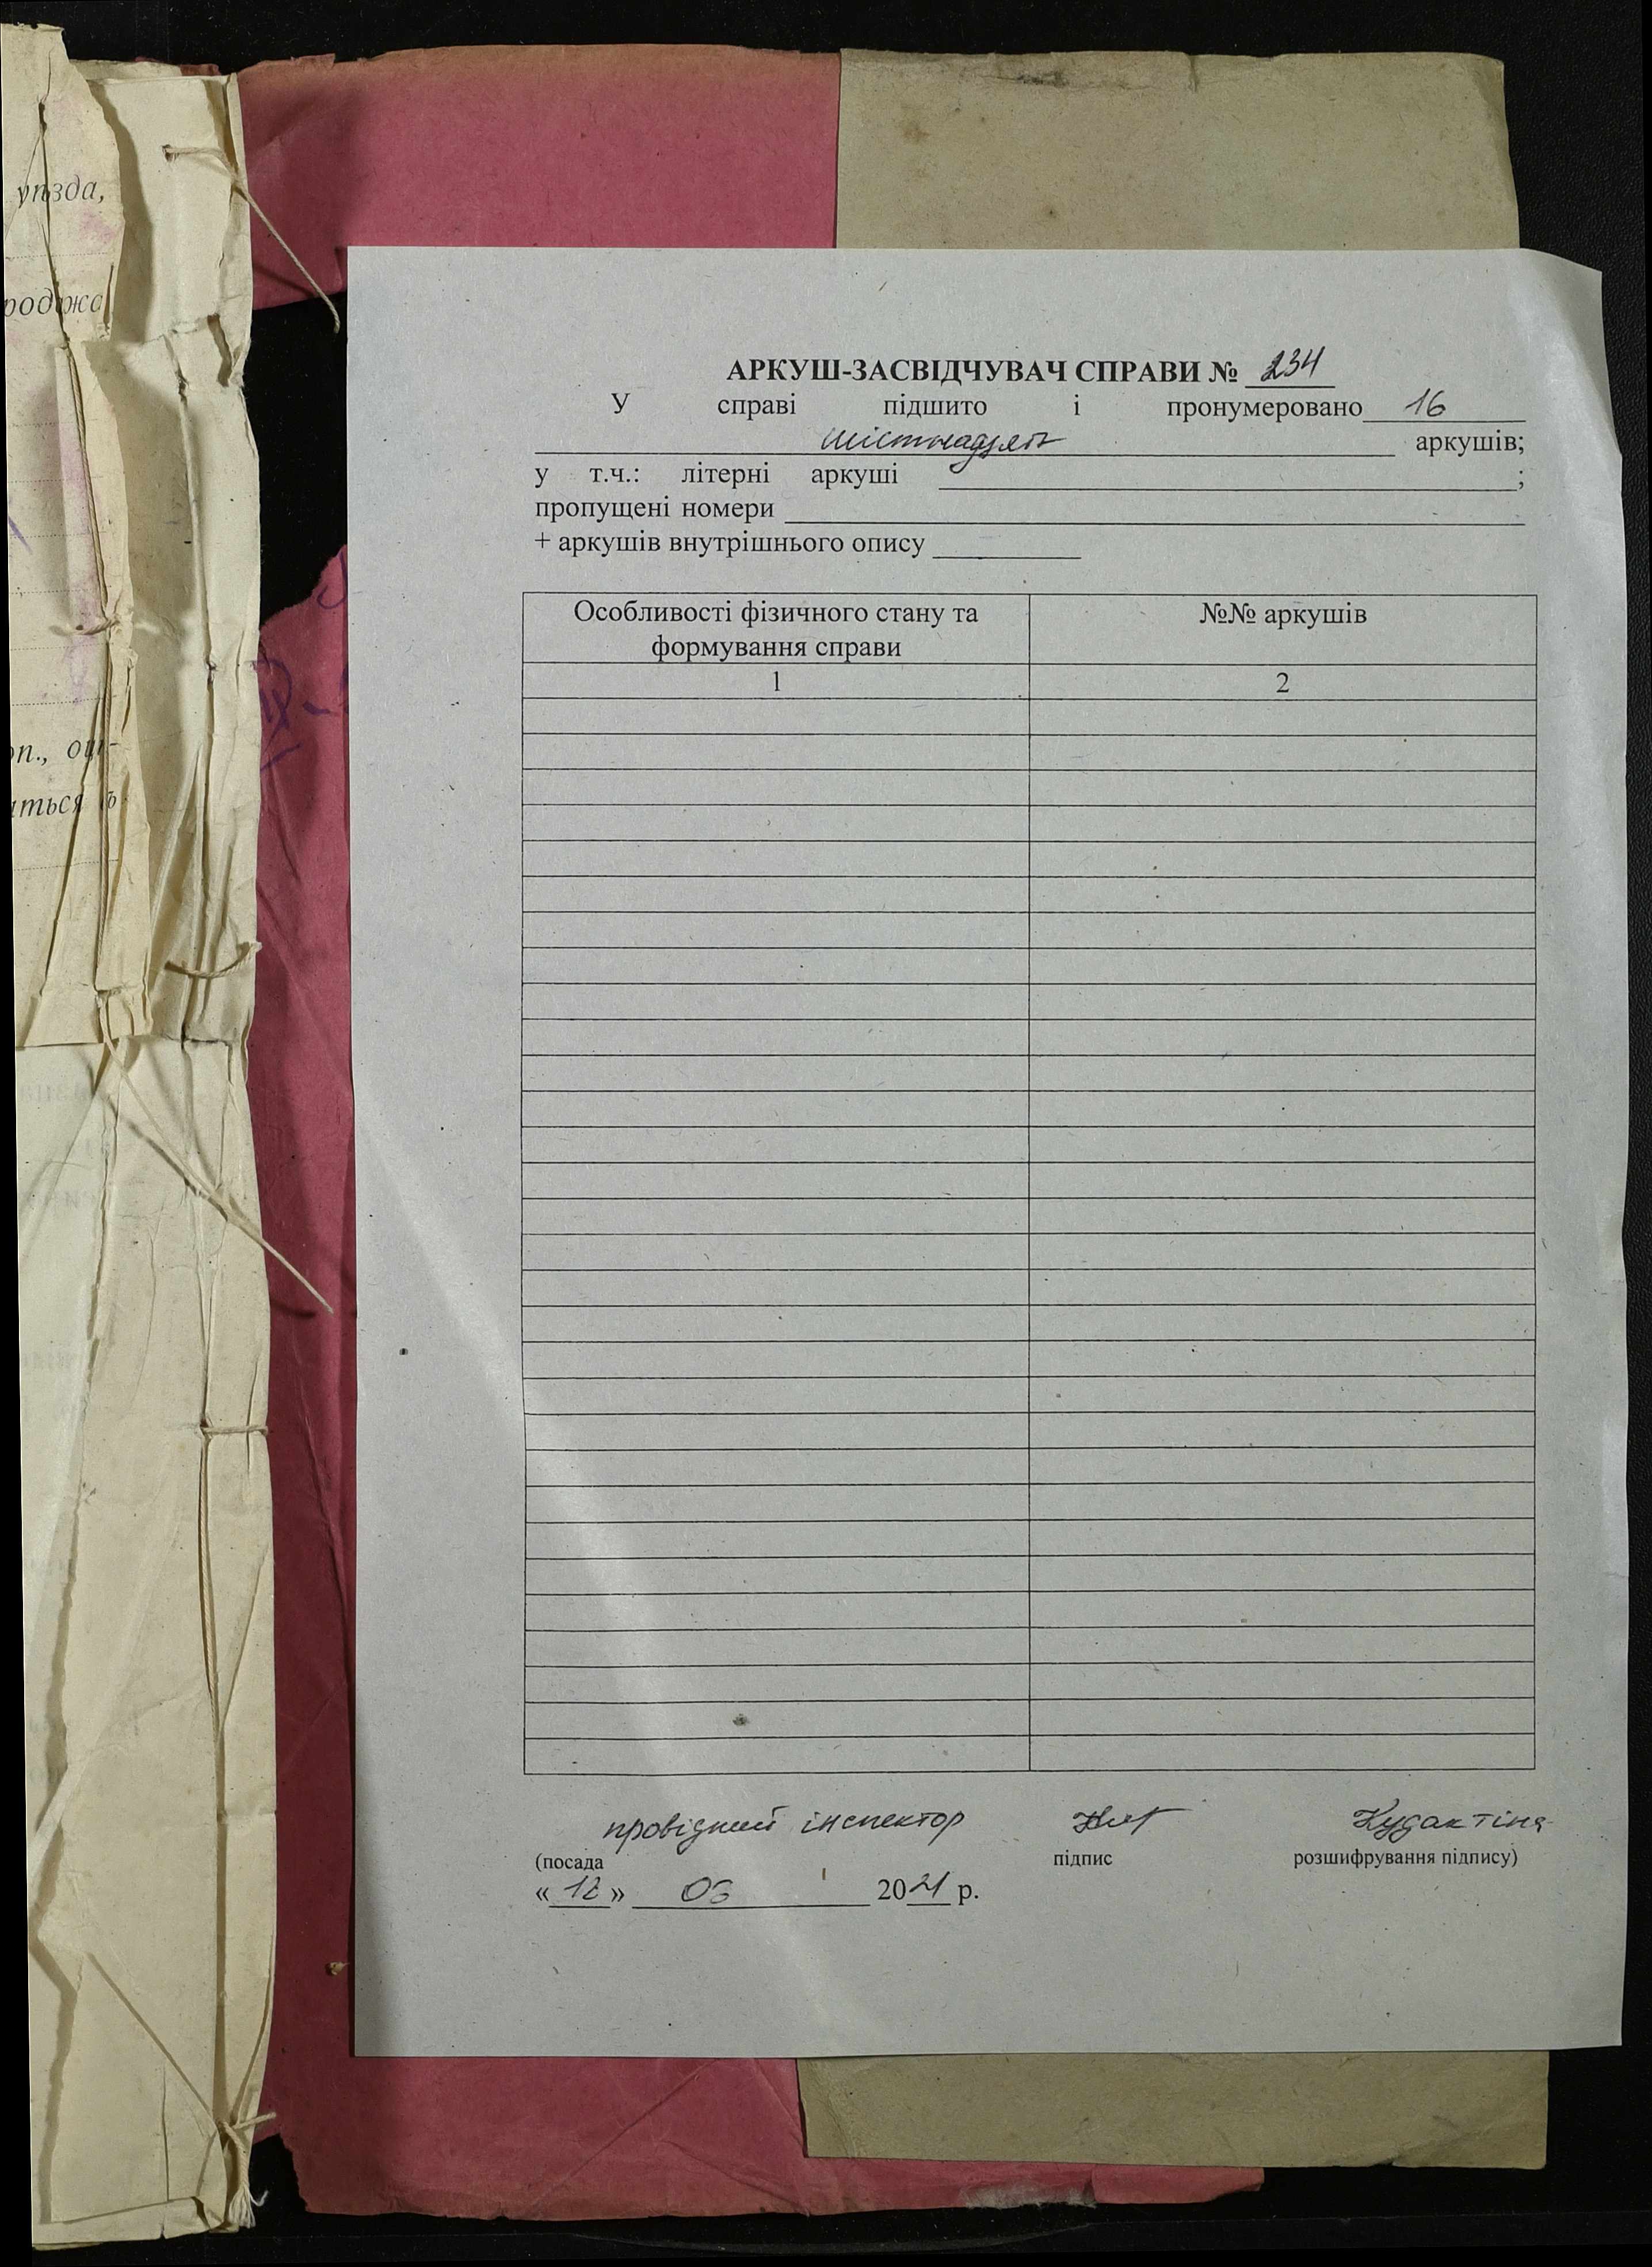 уѣзда,
АРКУШ-ЗАСВІДЧУВАЧ СПРАВИ № 234
У справі підшито і пронумеровано 16
шістнадцять аркушів;
у т.ч.: літерні аркуші ;
пропущені номери
+ аркушів внутрішнього опису
Особливості фізичного стану та
формування справи
№№ аркушів
1 2
провідний інспектор
(посада підпис розшифрування підпису)
«12» 03 2021 р.